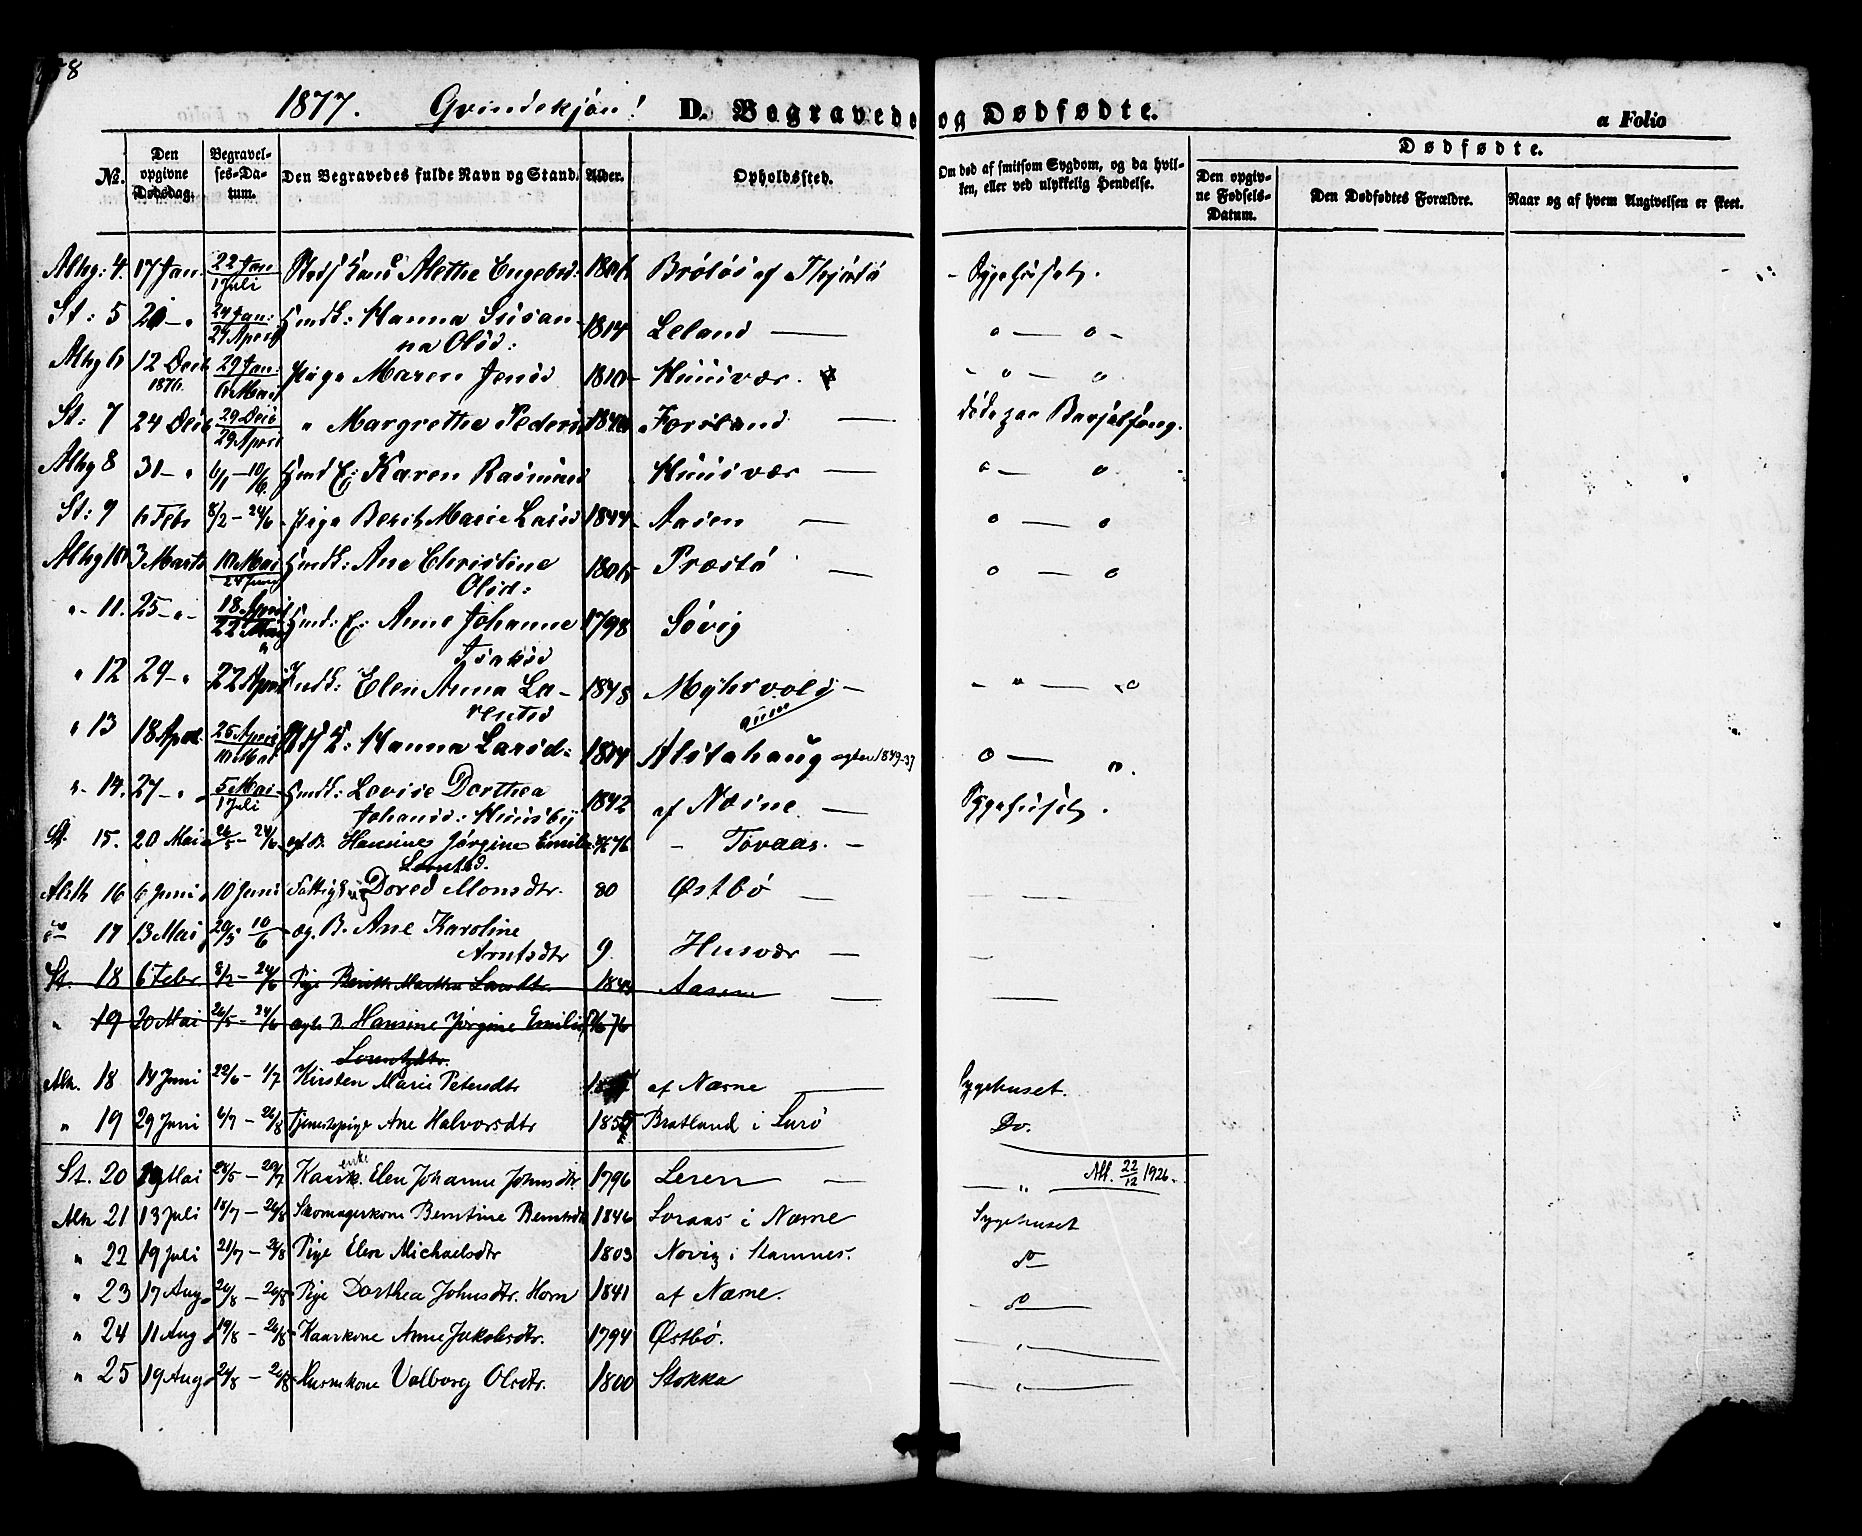 1877. Qvindekjøn! D. Begravede og Dødfødte. a Folio
No. Den opgivne Dødsdag. Begravelses-Datum. Den Begravedes fulde Navn og Stand. Alder. Opholdssted. Om død af smitsom Sygdom, og da hvilken, eller ved ulykkelig Hendelse. Dødfødte.
Den opgivne Fødsels-Datum. Den Dødfødtes Forældre. Naar og af hvem Angivelsen er skeet.
Alhg: 4. 17 Jan. 22 Jan 1 Juli Alethe Engebrd: af Thjøtø - Sygehuset.
St: 5 24 Jan: 29 April Hanna Susanna Olsd: 1814 Leland
Alhg 6 12 Decb 1876. 29 Jan: 6 Mai Pige Maren Jensd 1810 Huusvær.
St: 7 24 Decb 29 Decb 29 April " Margrethe Pedersd Forsland døde paa Barselseng.
Alhg 8 31 - " 6/1 - 10/6. Karen Rasmusd Huusvær
St: 9 6 Febr 8/2 - 24/6 Pige Berit Marie Larsd 1844 Aasen
Alhg 10 3 Marts 10 Mai 24 Juni Ane Christine Olsd: Præstø
" 11. 25 - " 18 April 22 Mai Anne Johanne Isaksd 1798 Søvig
" 12 29 - " 22 April Indk: Elen Anna Larentsd Myhrvold
" 13 18 April 25 April 10 Mai Hanna Larsd: 1814 Alstahaug
" 14. 27 - " 5 Mai 1 Juli Lovise Dorthea Johansd: Huusby 1842 af Næsne Sygehuset.
St. 15. 20 Mai 26/5 - 24/6 egt. B. Hansine Jørgine Emilie Lorntsd. - Tovaas. -
Alsth 16 6 Juni 10 Juni Dored Monsdtr. 80 Østbø
do 17 13 Mai 20/5 10/6 æg. B. Ane Karoline Arntsdtr 9. Husvær
St. 18 6 Febr 8/2 - 24/6 Pige Berith 1844 Aasen
" 19 20 Mai 26/5 - 24/6 ægte B. Hansine Jørgine Emilie Lorentzdtr.
Alh. 18 14 Juni 22/6 - 1/7 Kirsten Marie Petersdtr af Næsne Sygehuset.
" 19 29 Juni 6/7 - 26/8 Tjenestepige Ane Halvorsdtr Bratland i Lurø Do.
St. 20 Mai 28/5 - 20/7 Kaark. enke Elen Johanne Johnsdtr 1796 Leren " Afl. 22/12 1926.
Alh 21 13 Juli 18/7 - 26/8 Skomagerkone Berntine Berntsdtr 1846 Soraas i Næsne Sygehuset
" 22 19 Juli 21/7 - 26/8 Pige Elen Michaelsdtr 1803 Novig i Stamnes. do
" 23 17 Aug. 20/8 - 26/8 Pige Dorthea Johnsdtr. Horn 1841 af Næsne. - do
" 24 11 Aug 19/8 - 26/8 Kaarkone Anne Jakobsdtr. 1794 Østbø. "
" 25 19 Aug. 24/8 - 26/8 Huusmkone Valborg Olsdtr. 1800 Stokka "